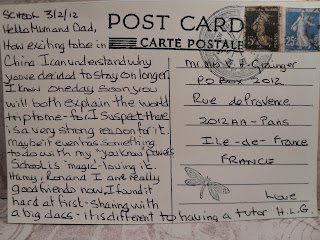 SCHOOL 3/2/12
Hello Mum and Dad,
How exciting to be in
China I can understand why
you've decided to stay on longer.
I know one day soon you
will both explain the world
trip to me - for I suspect there
is a very strong reason for it.
Maybe it even has something
to do with my "you know powers
School is 'magic' - loving it.
Harry, Ron and I are really
good friends now. I found it
hard at first - sharing with
a big class - it is different to having a tutor H.L.G
POST CARD
CARTE POSTALE
25
Granger
PO BOX 2012
Rue de Provence
2012AA - Paris
Ile-de-France
FRANCE
Love